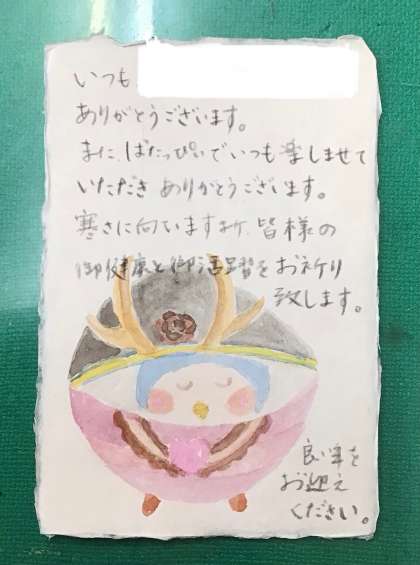 いつも
ありがとうございます。
また、ぱたっぴぃでいつも楽しませて
いただき ありがとうございます。
寒さに向いますが、皆様の
御健康と御活躍をお祈り
致します。
良い年を
お迎え
ください。